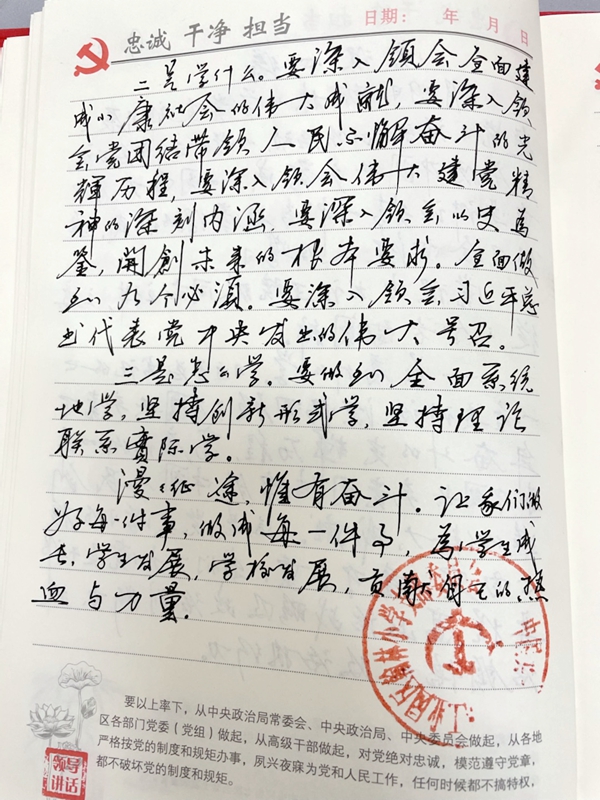 忠诚 干净 担当 日期： 年 月 日
二是学什么。要深入领会全面建
成小康社会的伟大成就，要深入领
会党团结带领人民不懈奋斗的光
辉历程，要深入领会伟大建党精
神的深刻内涵，要深入领会以史为
鉴，開創未来的根本要求。全面做
到九个必须。要深入领会习近平总
书记代表党中央发出的伟大号召。
三是怎么学。要做到全面系统
地学，坚持创新形式学，坚持理论
联系實际学。
漫漫征途，惟有奋斗。让我们做
好每一件事，做成每一件事，為学生成
长，学生发展，学校发展，贡献自己的热
血与力量。
要以上率下，从中央政治局常委会、中央政治局、中央委员会做起，从各地
区各部门党委（党组）做起，从高级干部做起，对党绝对忠诚，模范遵守党章，
严格按党的制度和规矩办事，夙兴夜寐为党和人民工作，任何时候都不搞特权，
都不破坏党的制度和规矩。
领导
讲话